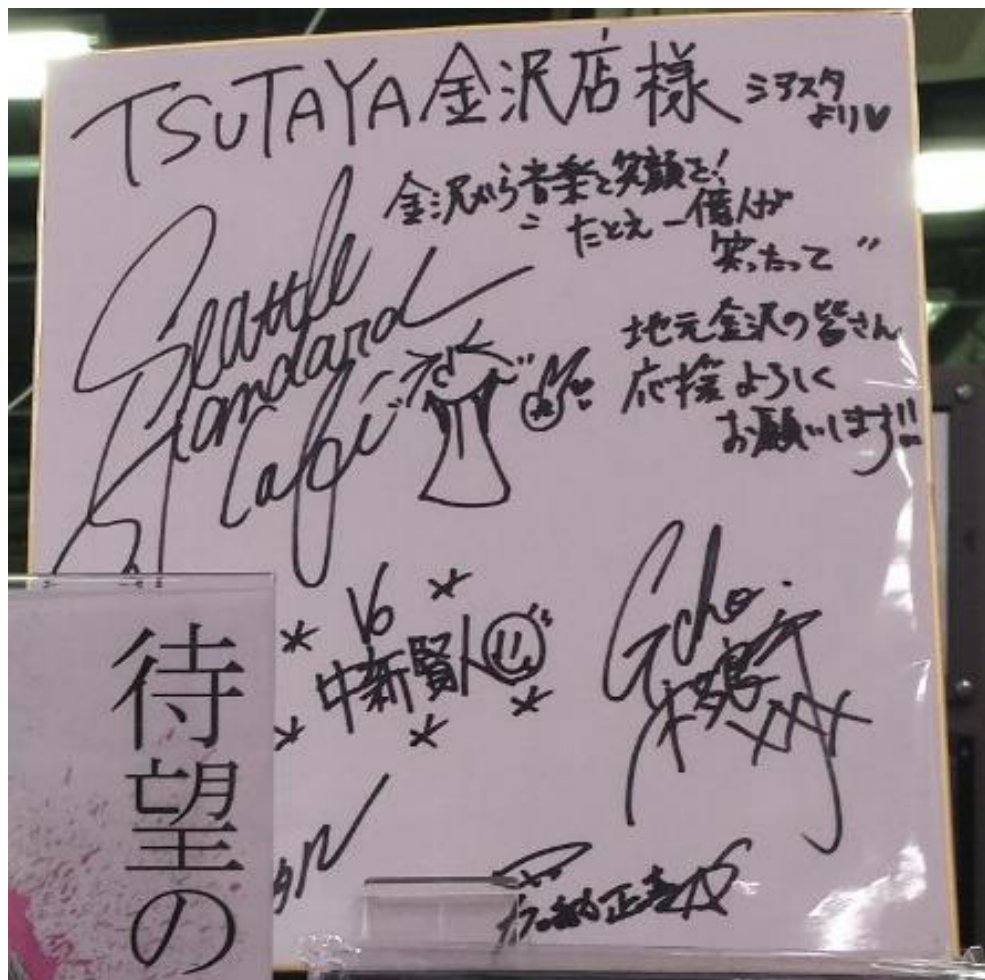 TSUTAYA金沢店様
シアスタ
より♥
金沢から音楽と笑顔を!
"たとえ一億人が
笑ったって"
Seattle
Standard
Cafe'
地元金沢の皆さん
応援よろしく
お願いします!!
Vo
中新賢人
Gcho
正
待望の